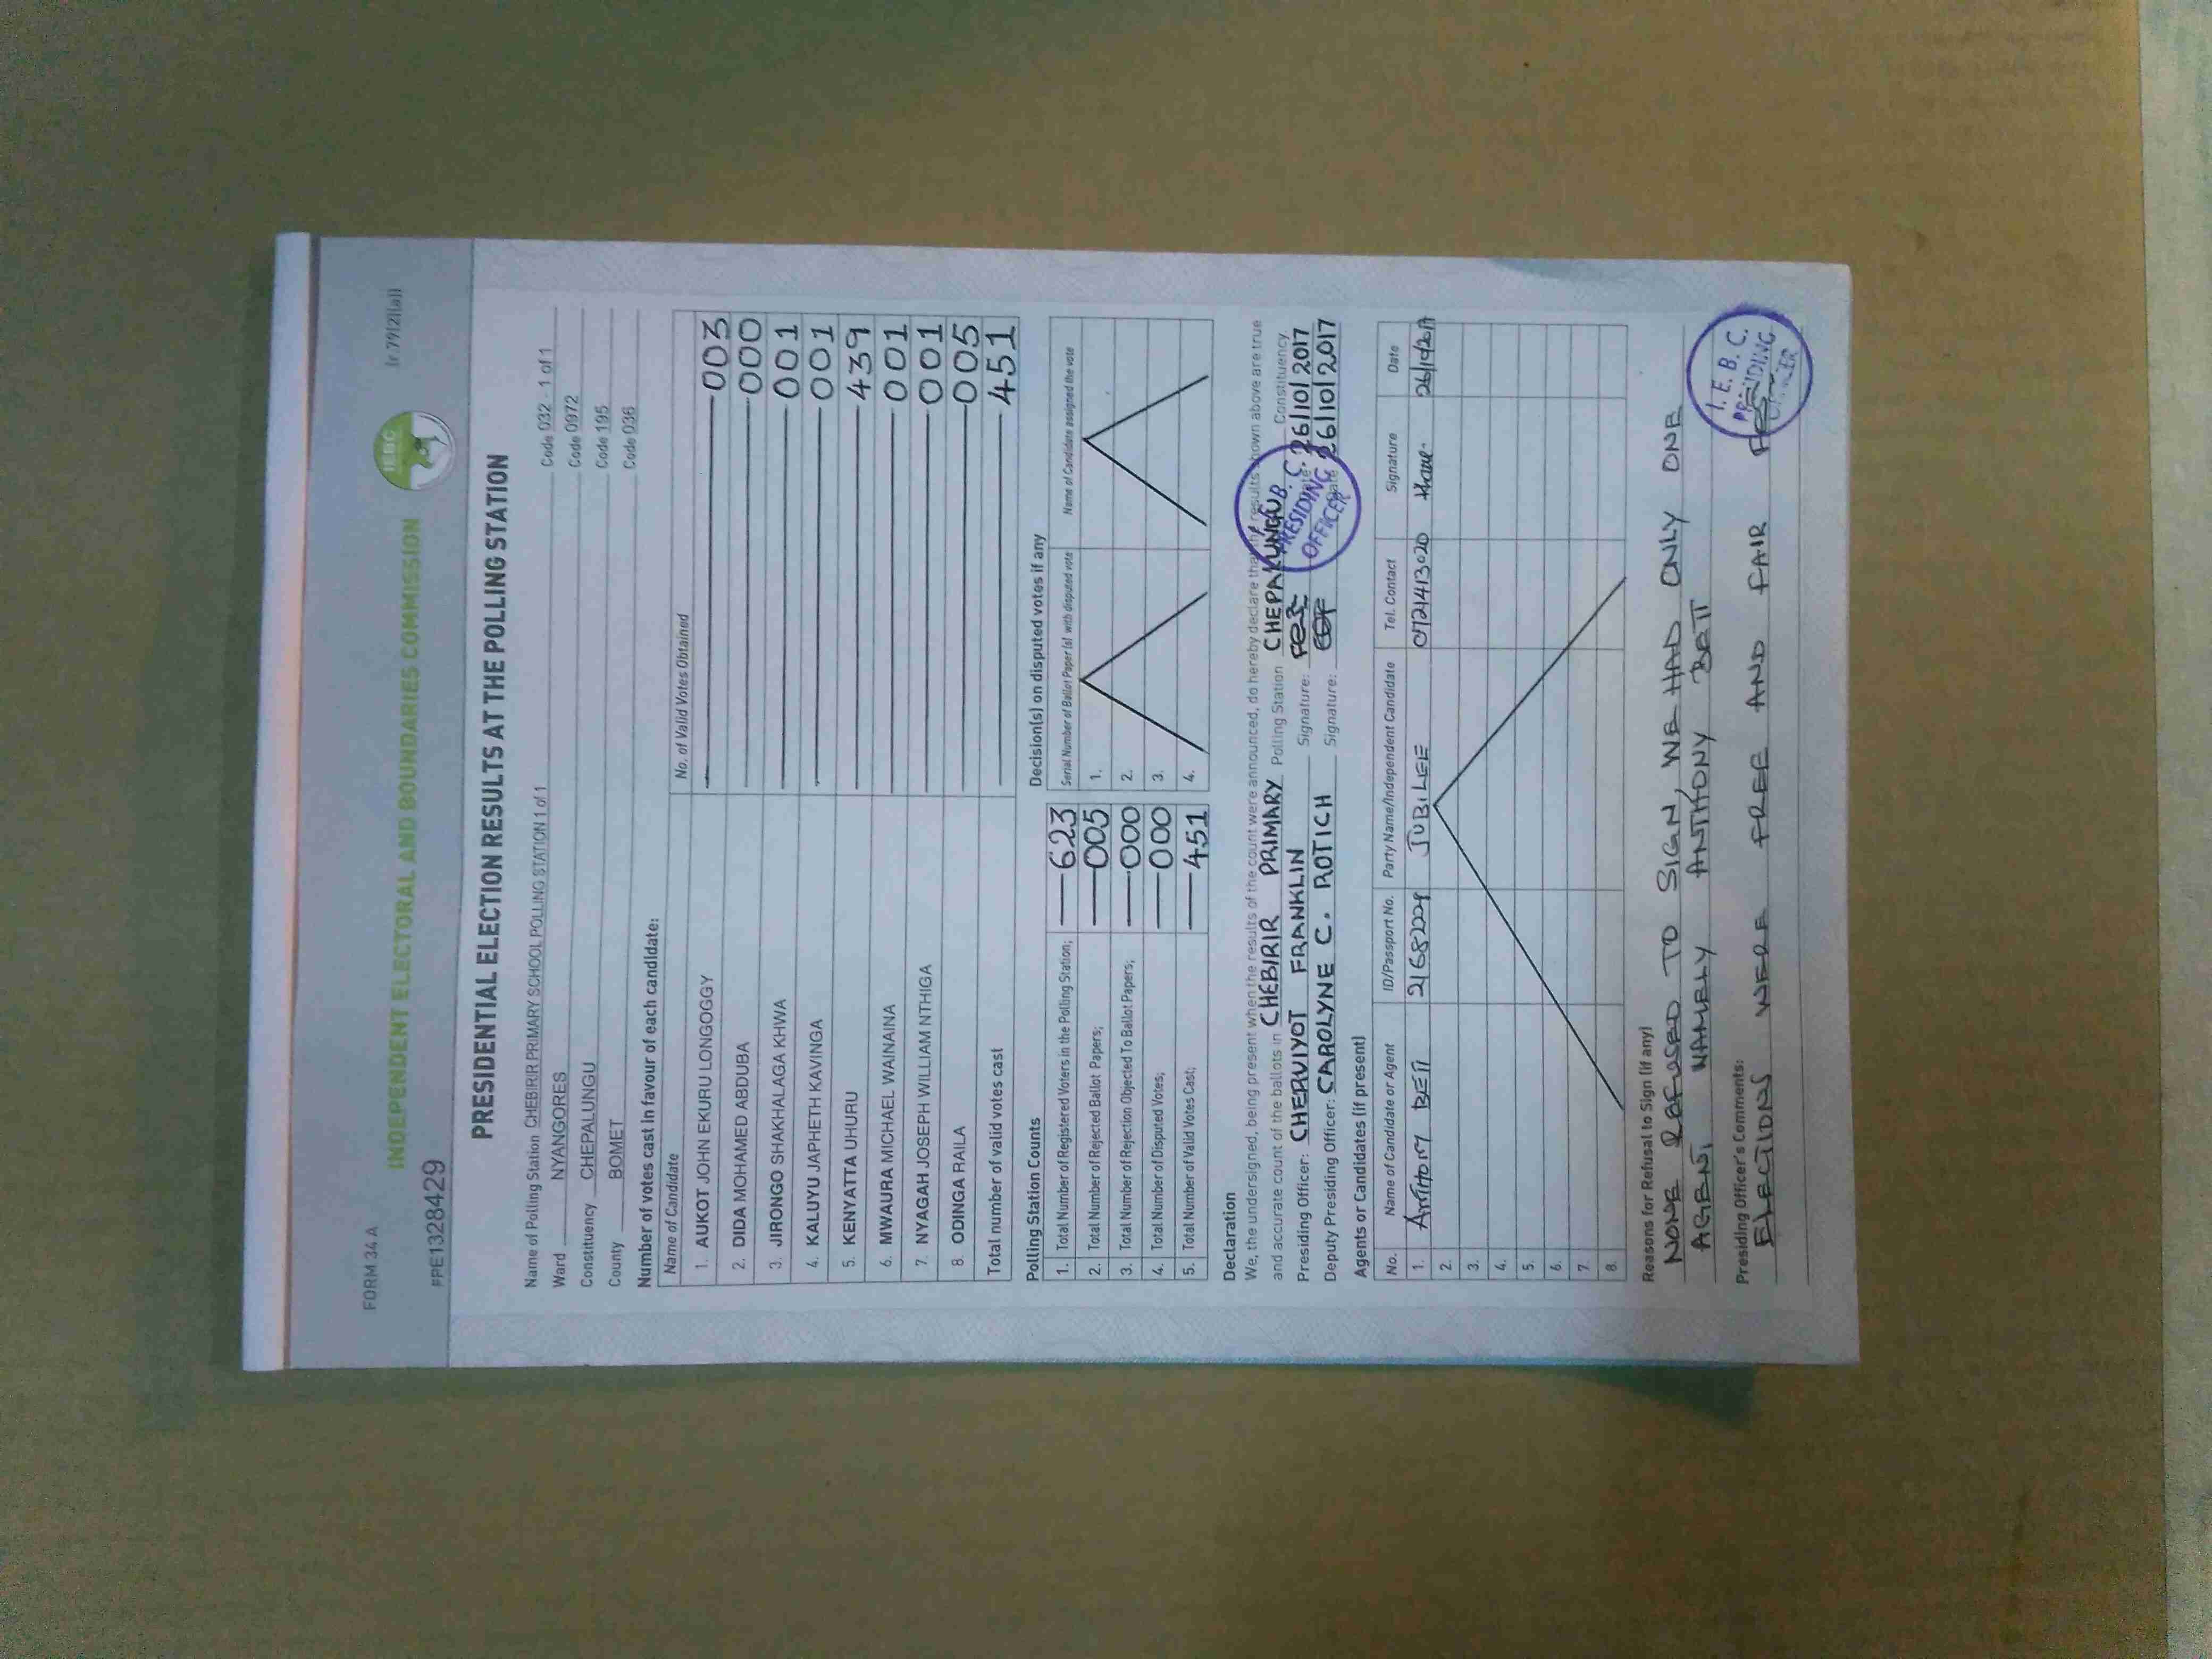 FORM 34 A
(r.79(2)(a))
INDEPENDENT ELECTORAL AND BOUNDARIES COMMISSION
IEBC
#PE1328429
PRESIDENTIAL ELECTION RESULTS AT THE POLLING STATION
Name of Polling Station CHEBIRIR PRIMARY SCHOOL POLLING STATION 1 of 1 Code 032 - 1 of 1
Ward NYANGORES Code 0972
Constituency CHEPALUNGU Code 195
County BOMET Code 036
Number of votes cast in favour of each candidate:
Name of Candidate No. of Valid Votes Obtained
1. AUKOT JOHN EKURU LONGOGGY 003
2. DIDA MOHAMED ABDUBA 000
3. JIRONGO SHAKHALAGA KHWA 001
4. KALUYU JAPHETH KAVINGA 001
5. KENYATTA UHURU 439
6. MWAURA MICHAEL WAINAINA 001
7. NYAGAH JOSEPH WILLIAM NTHIGA 001
8 ODINGA RAILA 005
Total number of valid votes cast 451
Polling Station Counts
1. Total Number of Registered Voters in the Polling Station; 623
2. Total Number of Rejected Ballot Papers; 005
3. Total Number of Rejection Objected To Ballot Papers; 000
4. Total Number of Disputed Votes; 000
5. Total Number of Valid Votes Cast; 451
Decision(s) on disputed votes if any
Serial Number of Ballot Paper (s) with disputed vote Name of Candidate assigned the vote
1.
2.
3.
4.
Declaration
We, the undersigned, being present when the results of the count were announced, do hereby declare that the results shown above are true
and accurate count of the ballots in CHEBIRIR PRIMARY Polling Station CHEPALUNGU Constituency.
Presiding Officer: CHERUIYOT FRANKLIN Signature: Date: 26/10/2017
Deputy Presiding Officer: CAROLYNE C. ROTICH Signature: Date 26/10/2017
PRESIDING
OFFICER
Agents or Candidates (if present)
No. Name of Candidate or Agent ID/Passport No. Party Name/Independent Candidate Tel. Contact Signature Date
1. BETT JUBILEE 0721413020
2.
3.
4.
5.
6.
7.
8.
Reasons for Refusal to Sign (if any)
NONE REFUSED TO SIGN, WE HAD ONLY ONE
AGENT NAMELY ANTHONY BETT
Presiding Officer's Comments:
ELECTIONS WERE FREE AND FAIR
I. E. B. C.
PRESIDING
OFFICER